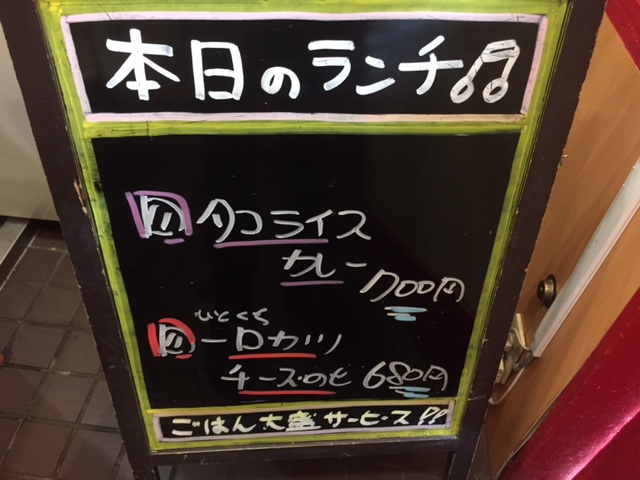 本日のランチ
タコライス
カレー 700円
ひとくち
一口カツ
チーズのせ 680円
ごはん大盛サービス!!